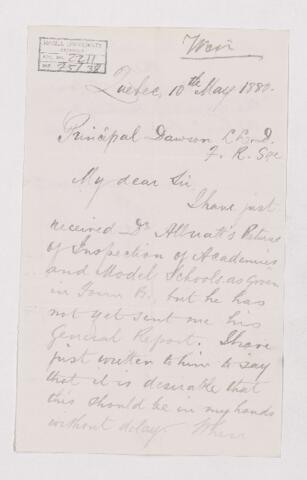 McGILL UNIVERSITY
ARCHIVES
ACC. NO. 2211
REF. 
Weir
Quebec, 10th May 1880.
Principal Dawson LL.D.
F. R. S &c
My dear Sir,
I have just
received Dr Allnatt's Return
of Inspection of Academies
and Model Schools, as given
in Form B, but he has
not yet sent me his
General Report. I have
just written to him to say
that it is desirable that
this should be in my hands
without delay. When